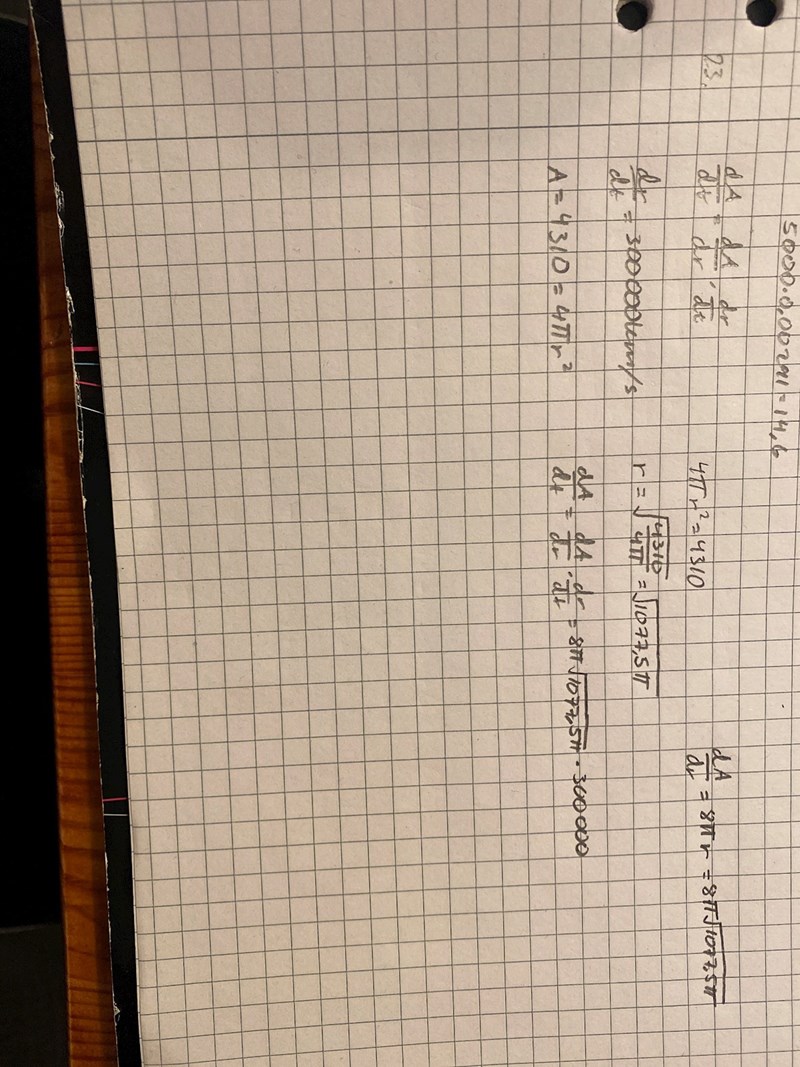 5000·0,00291=14,6
23. dA/dt = dA/dr · dr/dt
4πr² = 4310
dA/dr = 8πr = 8π√1077,5π
dr/dt = 300000km/s
r = √(4310/4π) = √1077,5π
A = 4310 = 4πr²
dA/dt = dA/dr · dr/dt = 8π√1077,5π · 300000